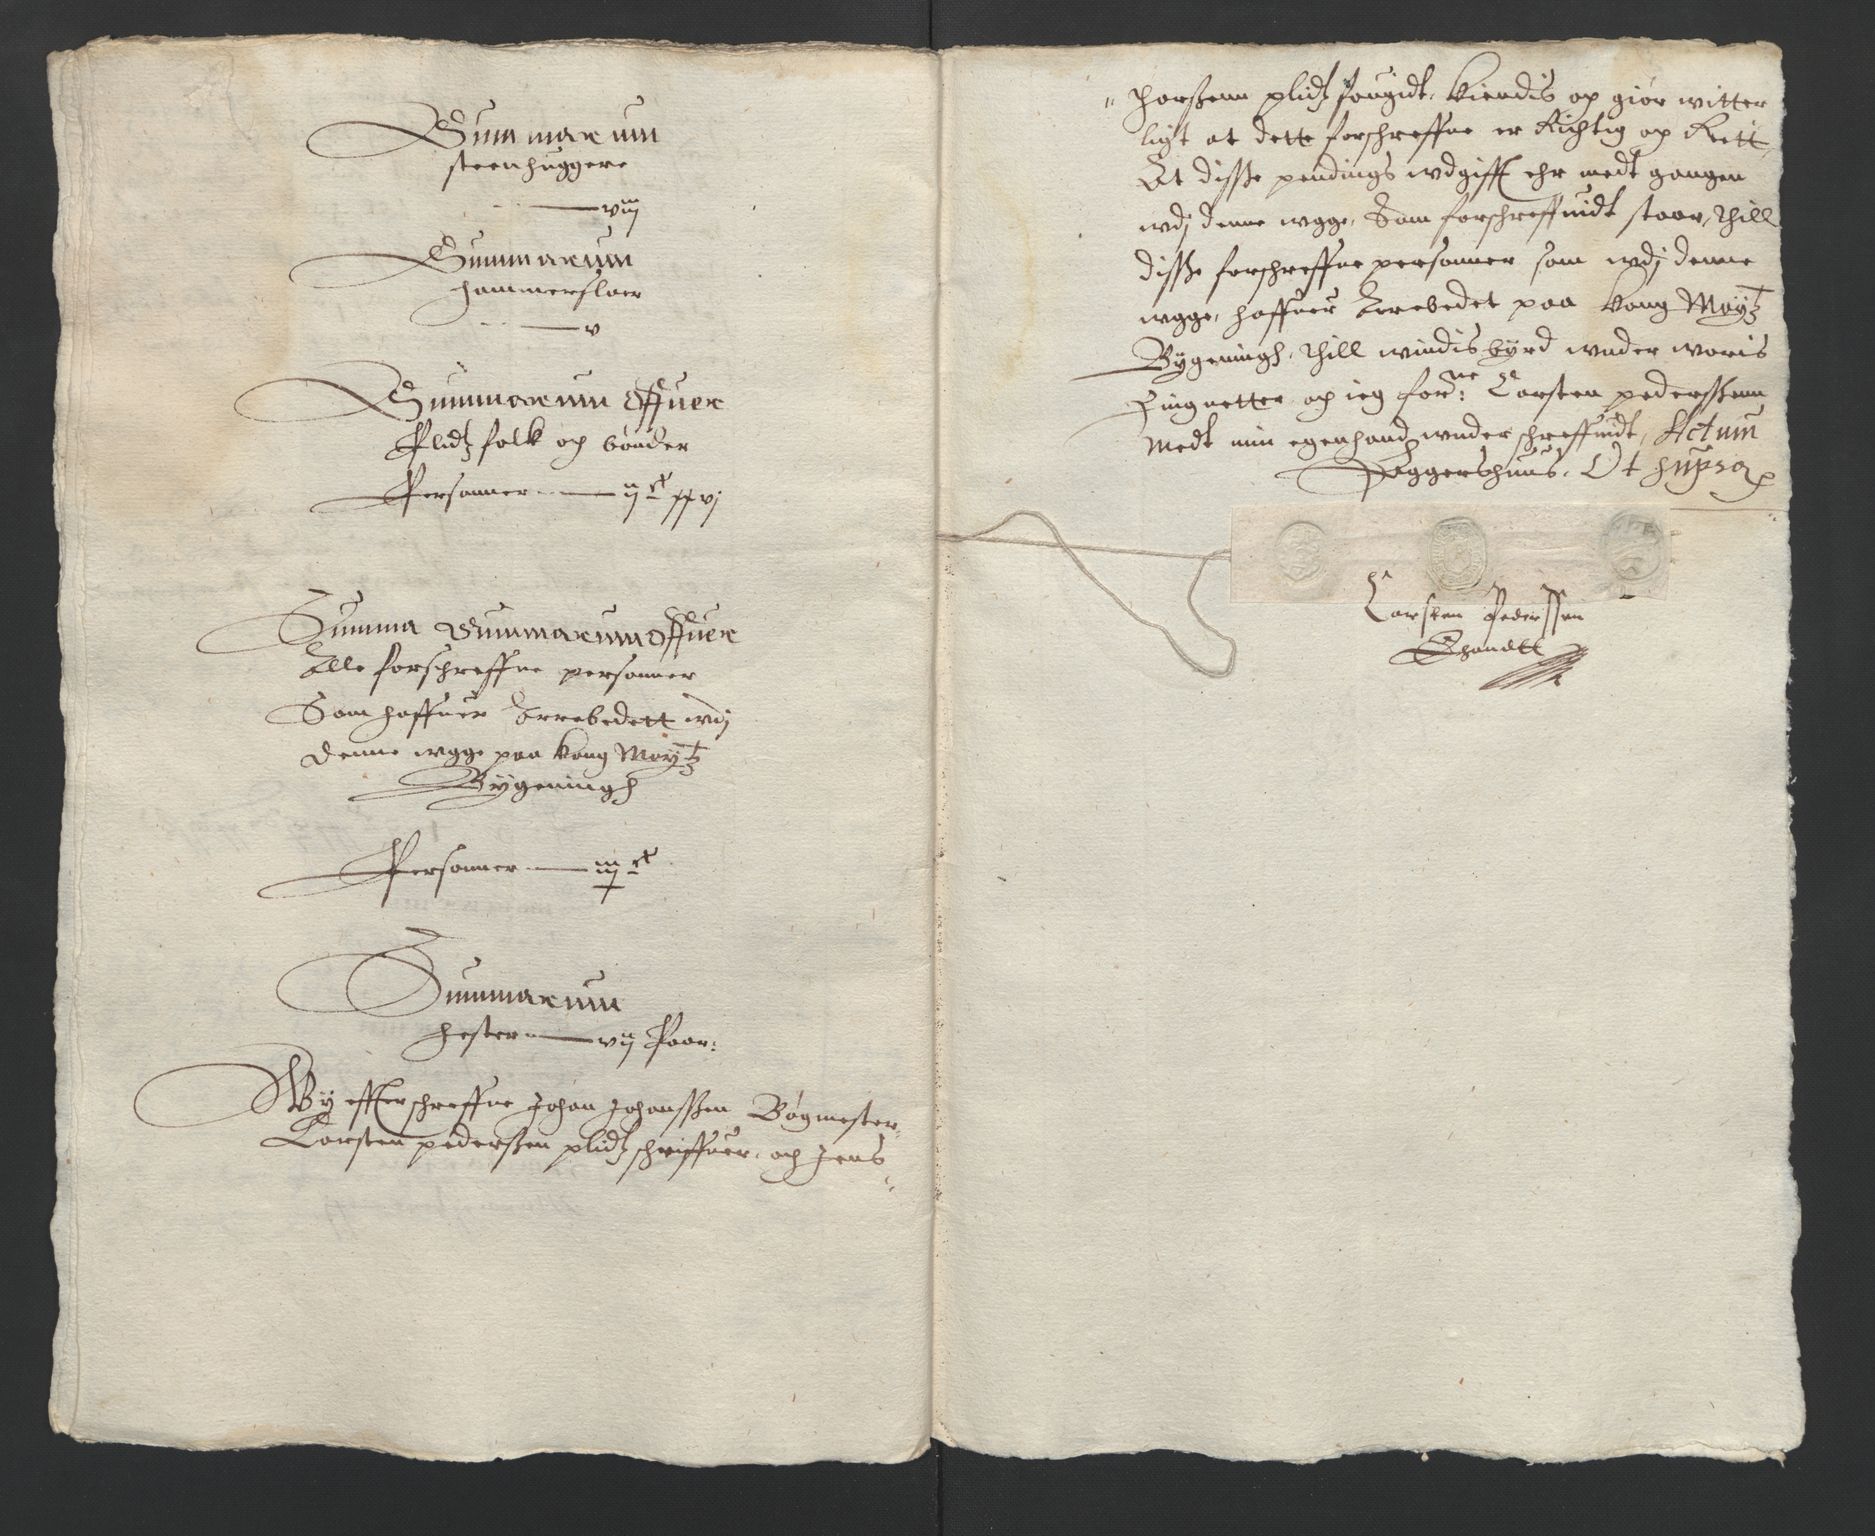 Summarum
steenhuggere
viij
Summarum
hammerslaer
v
Summarum Offuer
Plidtz folk och bønder
Personner ij
Summa Summarum Offuer
Alle forschreffne personner
Som haffuer Arrebedett wdj
denne wgge paa kong Maytz
Bygeningh
Personner
Summarum
hester vij Paar:
Wy effterschreffne Johan Johanssen Bøgmester,
Carsten pederssen plidtz schriffuer, och Jens
thorssenn plidtz fougidt, kiendis og giør witter
ligt at dette forschreffne er Richtig og Rett,
At disse pendings wdgifft ehr medt gangen
wdj denne wgge, Som forschreffuidt staar, thill
disse forschreffne personner som wdj denne
wgge, haffuer Arrebedet paa kong Maytz
Bygeningh, thill windisbyrd wnder woris
Zingnetter och ieg forne: Carsten pederssenn
Medt min egenhandt wnderschreffuidt, Actum
Aggershuus, Ut supra
Carsten Pederssen
Ehandtt